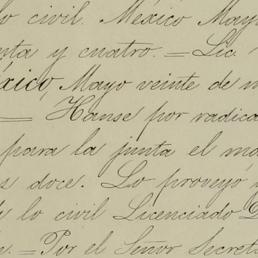 lo civil. México Mayo
nta y cuatro. = Lic
xico, Mayo veinte de m
= Hanse por radica
para la junta el
s doce. Lo proveyó
de lo civil Licenciado
= Por el Señor Secreta